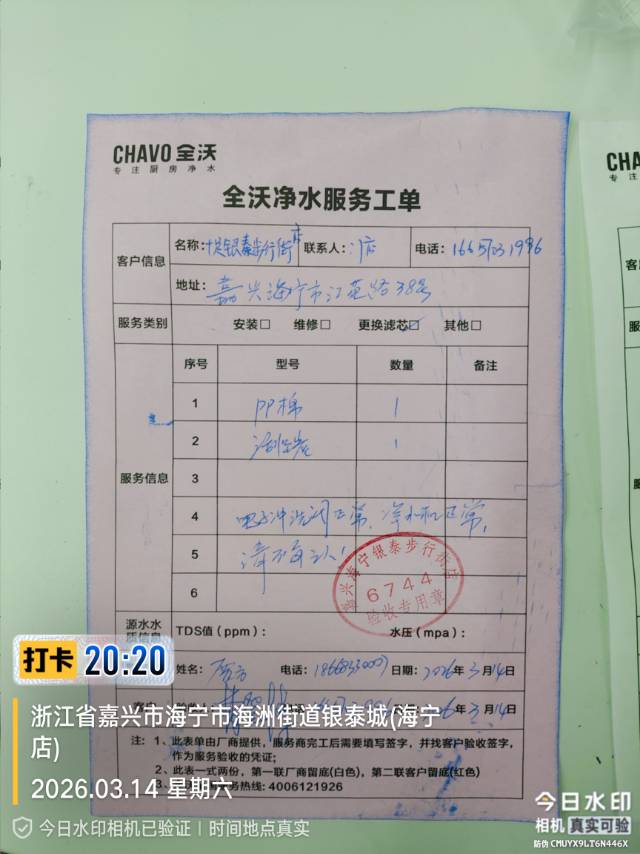 CHAVO 全沃
专注厨房净水
CHAVO
专注
全沃净水服务工单
客户信息
名称: 银泰步行街店 联系人: 店 电话:
地址: 嘉兴海宁市江南路38号
服务类别 安装□ 维修□ 更换滤芯☑ 其他□
服务信息
序号 型号 数量 备注
1 PP棉 1
2 活性炭 1
3
4 电子冲洗阀正常,净水机正常,
5 请确认!
6
嘉兴海宁银泰步行街店
6744
验收专用章
源水水质信息 TDS值(ppm): 水压(mpa):
姓名: 电话: 日期: 2026年3月14日
年3月14日
注: 1、此表单由厂商提供,服务商完工后需要填写签字,并找客户验收签字,
作为服务验收的凭证;
2、此表一式两份,第一联厂商留底(白色),第二联客户留底(红色)
服务热线: 4006121926
打卡 20:20
浙江省嘉兴市海宁市海洲街道银泰城(海宁
店)
2026.03.14 星期六
今日水印相机已验证 | 时间地点真实
今日水印
相机 真实可验
防伪 CMUYX9LT6N446X